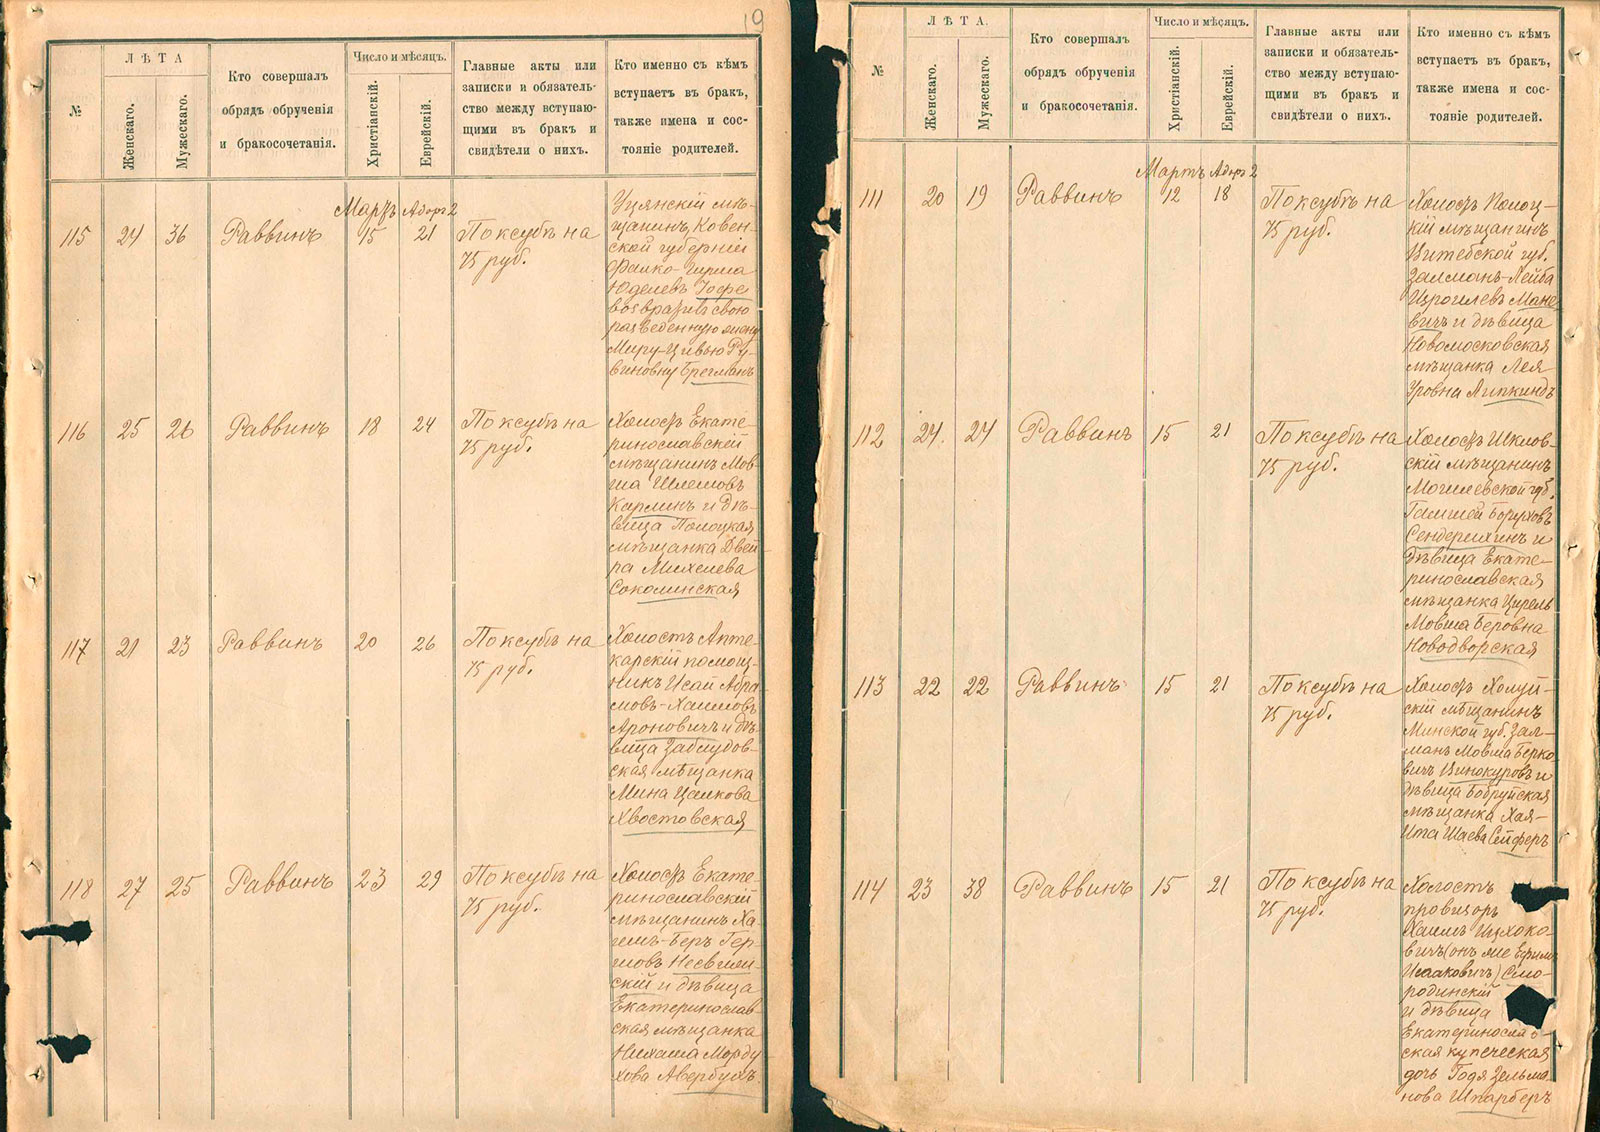 19
№
ЛѢТА
Женскаго.
Мужескаго.
Кто совершалъ
обрядъ обрученія
и бракосочетанія.
Число и мѣсяцъ.
Христіанскій.
Еврейскій.
Главные акты или
записки и обязатель-
ство между вступаю-
щими въ бракъ и
свидѣтели о нихъ.
Кто именно съ кѣмъ
вступаетъ въ бракъ,
также имена и сос-
тояніе родителей.
115 24 36 Раввинъ Мартъ 15 Адоръ 2 21
По ксубѣ на
75 руб.
Уцянскій мѣ-
щанинъ, Ковен-
ской губерніи
Фалко-Гирша
Юделевъ Іофе
возвратилъ свою
разведенную жену
Миру-Цивью Ру-
виновну Брегманъ
116 25 26 Раввинъ 18 24
По ксубѣ на
75 руб.
Холостъ Екате-
ринославскій
мѣщанинъ Мов-
ша Шлемовъ
Карлинъ и дѣ-
вица Полоцкая
мѣщанка Двей-
ра Михелева
Соколинская
117 21 23 Раввинъ 20 26
По ксубѣ на
75 руб.
Холостъ Апте-
карскій помощ-
никъ Исай Абра-
мовъ-Хаимовъ
Ароновичъ и дѣ-
вица Заблудов-
ская мѣщанка
Мина Цалкова
Хвостовская
118 27 25 Раввинъ 23 29
По ксубѣ на
75 руб.
Холостъ Екате-
ринославскій
мѣщанинъ Ха-
имъ-Беръ Гер-
шовъ Несвиж-
скій и дѣвица
Екатеринослав-
ская мѣщанка
Нихама Морду-
хова Авербухъ
№
ЛѢТА.
Женскаго.
Мужескаго.
Кто совершалъ
обрядъ обрученія
и бракосочетанія.
Число и мѣсяцъ.
Христіанскій.
Еврейскій.
Главные акты или
записки и обязатель-
ство между вступаю-
щими въ бракъ и
свидѣтели о нихъ.
Кто именно съ кѣмъ
вступаетъ въ бракъ,
также имена и сос-
тояніе родителей.
111 20 19 Раввинъ Мартъ 12 Адоръ 2 18
По ксубѣ на
75 руб.
Холостъ Полоц-
кій мѣщанинъ
Витебской губ.
Залманъ-Лейба
Изроилевъ Мане-
вичъ и дѣвица
Новомосковская
мѣщанка Лея
Уровна Липкиндъ
112 24 24 Раввинъ 15 21
По ксубѣ на
75 руб.
Холостъ Шклов-
скій мѣщанинъ
Могилевской губ.
Боруховъ
Сендерихинъ и
дѣвица Екате-
ринославская
мѣщанка Цирель
Мовша Беровна
Новодворская
113 22 22 Раввинъ 15 21
По ксубѣ на
75 руб.
Холостъ Холуй-
скій мѣщанинъ
Минской губ. Зал-
манъ Мовша Берко-
вичъ Винокуровъ и
дѣвица Бобруйская
мѣщанка Хая-
Ита Шаева Сейферъ
114 23 38 Раввинъ 15 21
По ксубѣ на
75 руб.
Холостъ
провизоръ
Хаимъ Ицхоко-
вичъ (онъ же Ефимъ
Исааковичъ) Смо-
родинскій
и дѣвица
Екатеринослав-
ская купеческая
дочь Годя Зельма-
нова Шпарберъ